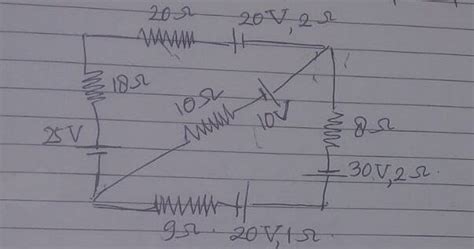 20Ω 20V, 2Ω
18Ω
10Ω
10V
25V
8Ω
30V, 2Ω
9Ω 20V, 1Ω